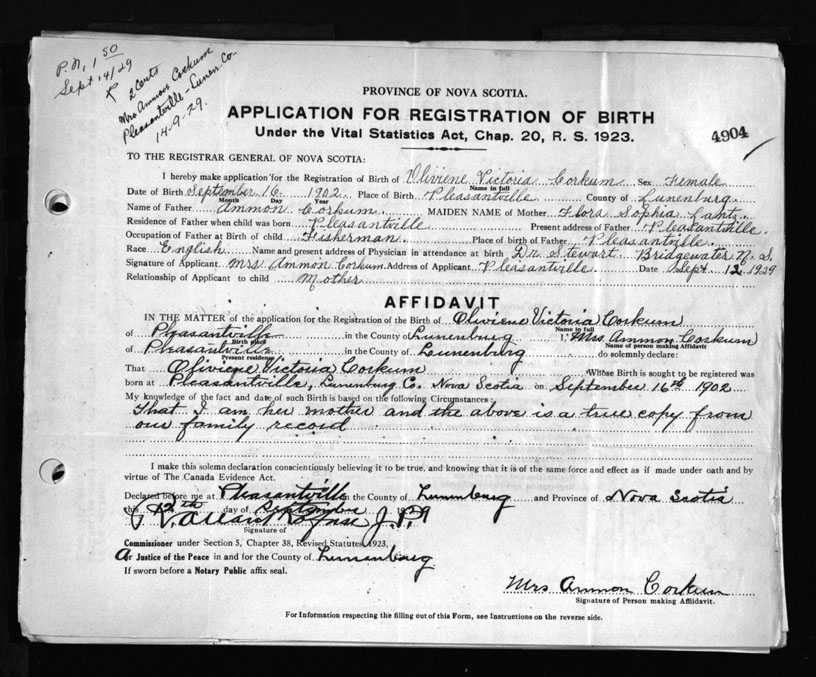 P.N. 1 50
Sept 14/29
2 Certs
Mrs Ammon Corkum
Pleasantville - Lunen. Co.
14-9-29.
PROVINCE OF NOVA SCOTIA.
APPLICATION FOR REGISTRATION OF BIRTH
Under the Vital Statistics Act, Chap. 20, R. S. 1923.
4904
TO THE REGISTRAR GENERAL OF NOVA SCOTIA:
I hereby make application for the Registration of Birth of Oliviene Victoria Corkum Sex Female
Name in full
Date of Birth September 16 1902 Place of Birth Pleasantville County of Lunenburg
Month Day Year
Name of Father Ammon Corkum MAIDEN NAME of Mother Flora Sophia Lantz
Residence of Father when child was born Pleasantville Present address of Father Pleasantville
Occupation of Father at Birth of child Fisherman Place of birth of Father Pleasantville
Race English Name and present address of Physician in attendance at birth Dr. Stewart Bridgewater N. S.
Signature of Applicant Mrs Ammon Corkum Address of Applicant Pleasantville Date Sept 12 1929
Relationship of Applicant to child Mother
AFFIDAVIT
IN THE MATTER of the application for the Registration of the Birth of Oliviene Victoria Corkum
Name in full
of Pleasantville in the County of Lunenburg I, Mrs Ammon Corkum
Birth place Name of person making Affidavit
of Pleasantville in the County of Lunenburg do solemnly declare:
Present residence
That Oliviene Victoria Corkum Whose Birth is sought to be registered was
born at Pleasantville, Lunenburg Co. Nova Scotia on September 16th 1902
My knowledge of the fact and date of such Birth is based on the following Circumstances:
That I am her mother and the above is a true copy from
our family record
I make this solemn declaration conscientiously believing it to be true, and knowing that it is of the same force and effect as if made under oath and by
virtue of The Canada Evidence Act.
Declared before me at Pleasantville in the County of Lunenburg and Province of Nova Scotia
this 12th day of September 1929
J. P.
Signature of
Commissioner under Section 5, Chapter 38, Revised Statutes 1923,
A or Justice of the Peace in and for the County of Lunenburg
If sworn before a Notary Public affix seal.
Mrs Ammon Corkum
Signature of Person making Affidavit.
For Information respecting the filling out of this Form, see Instructions on the reverse side.